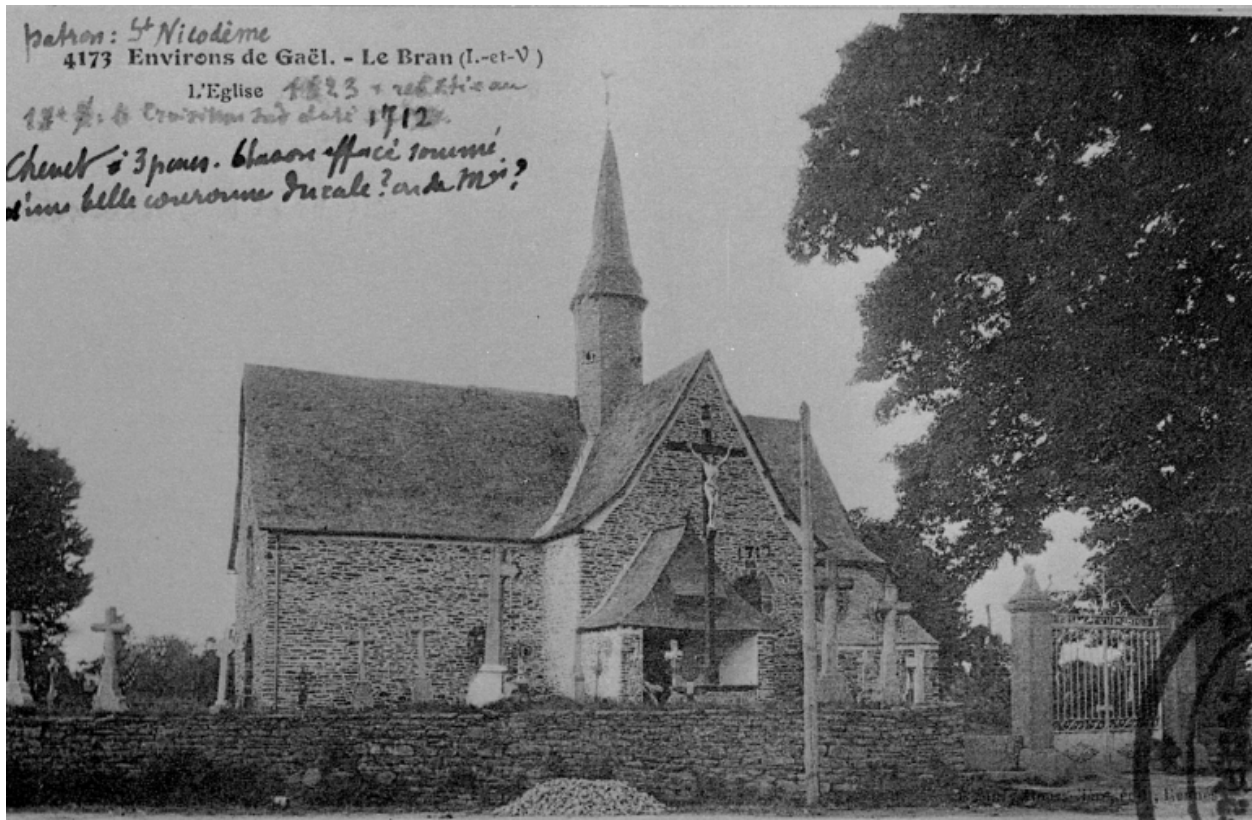 patron: St Nicodème
4173 Environs de Gaël. - Le Bran (I.-et-V)
L'Eglise 1823
Croisillon Sud daté 1712.
Chevet à 3 pans. blason effacé sommé
d'une belle couronne ducale? ou de Mis?
1712